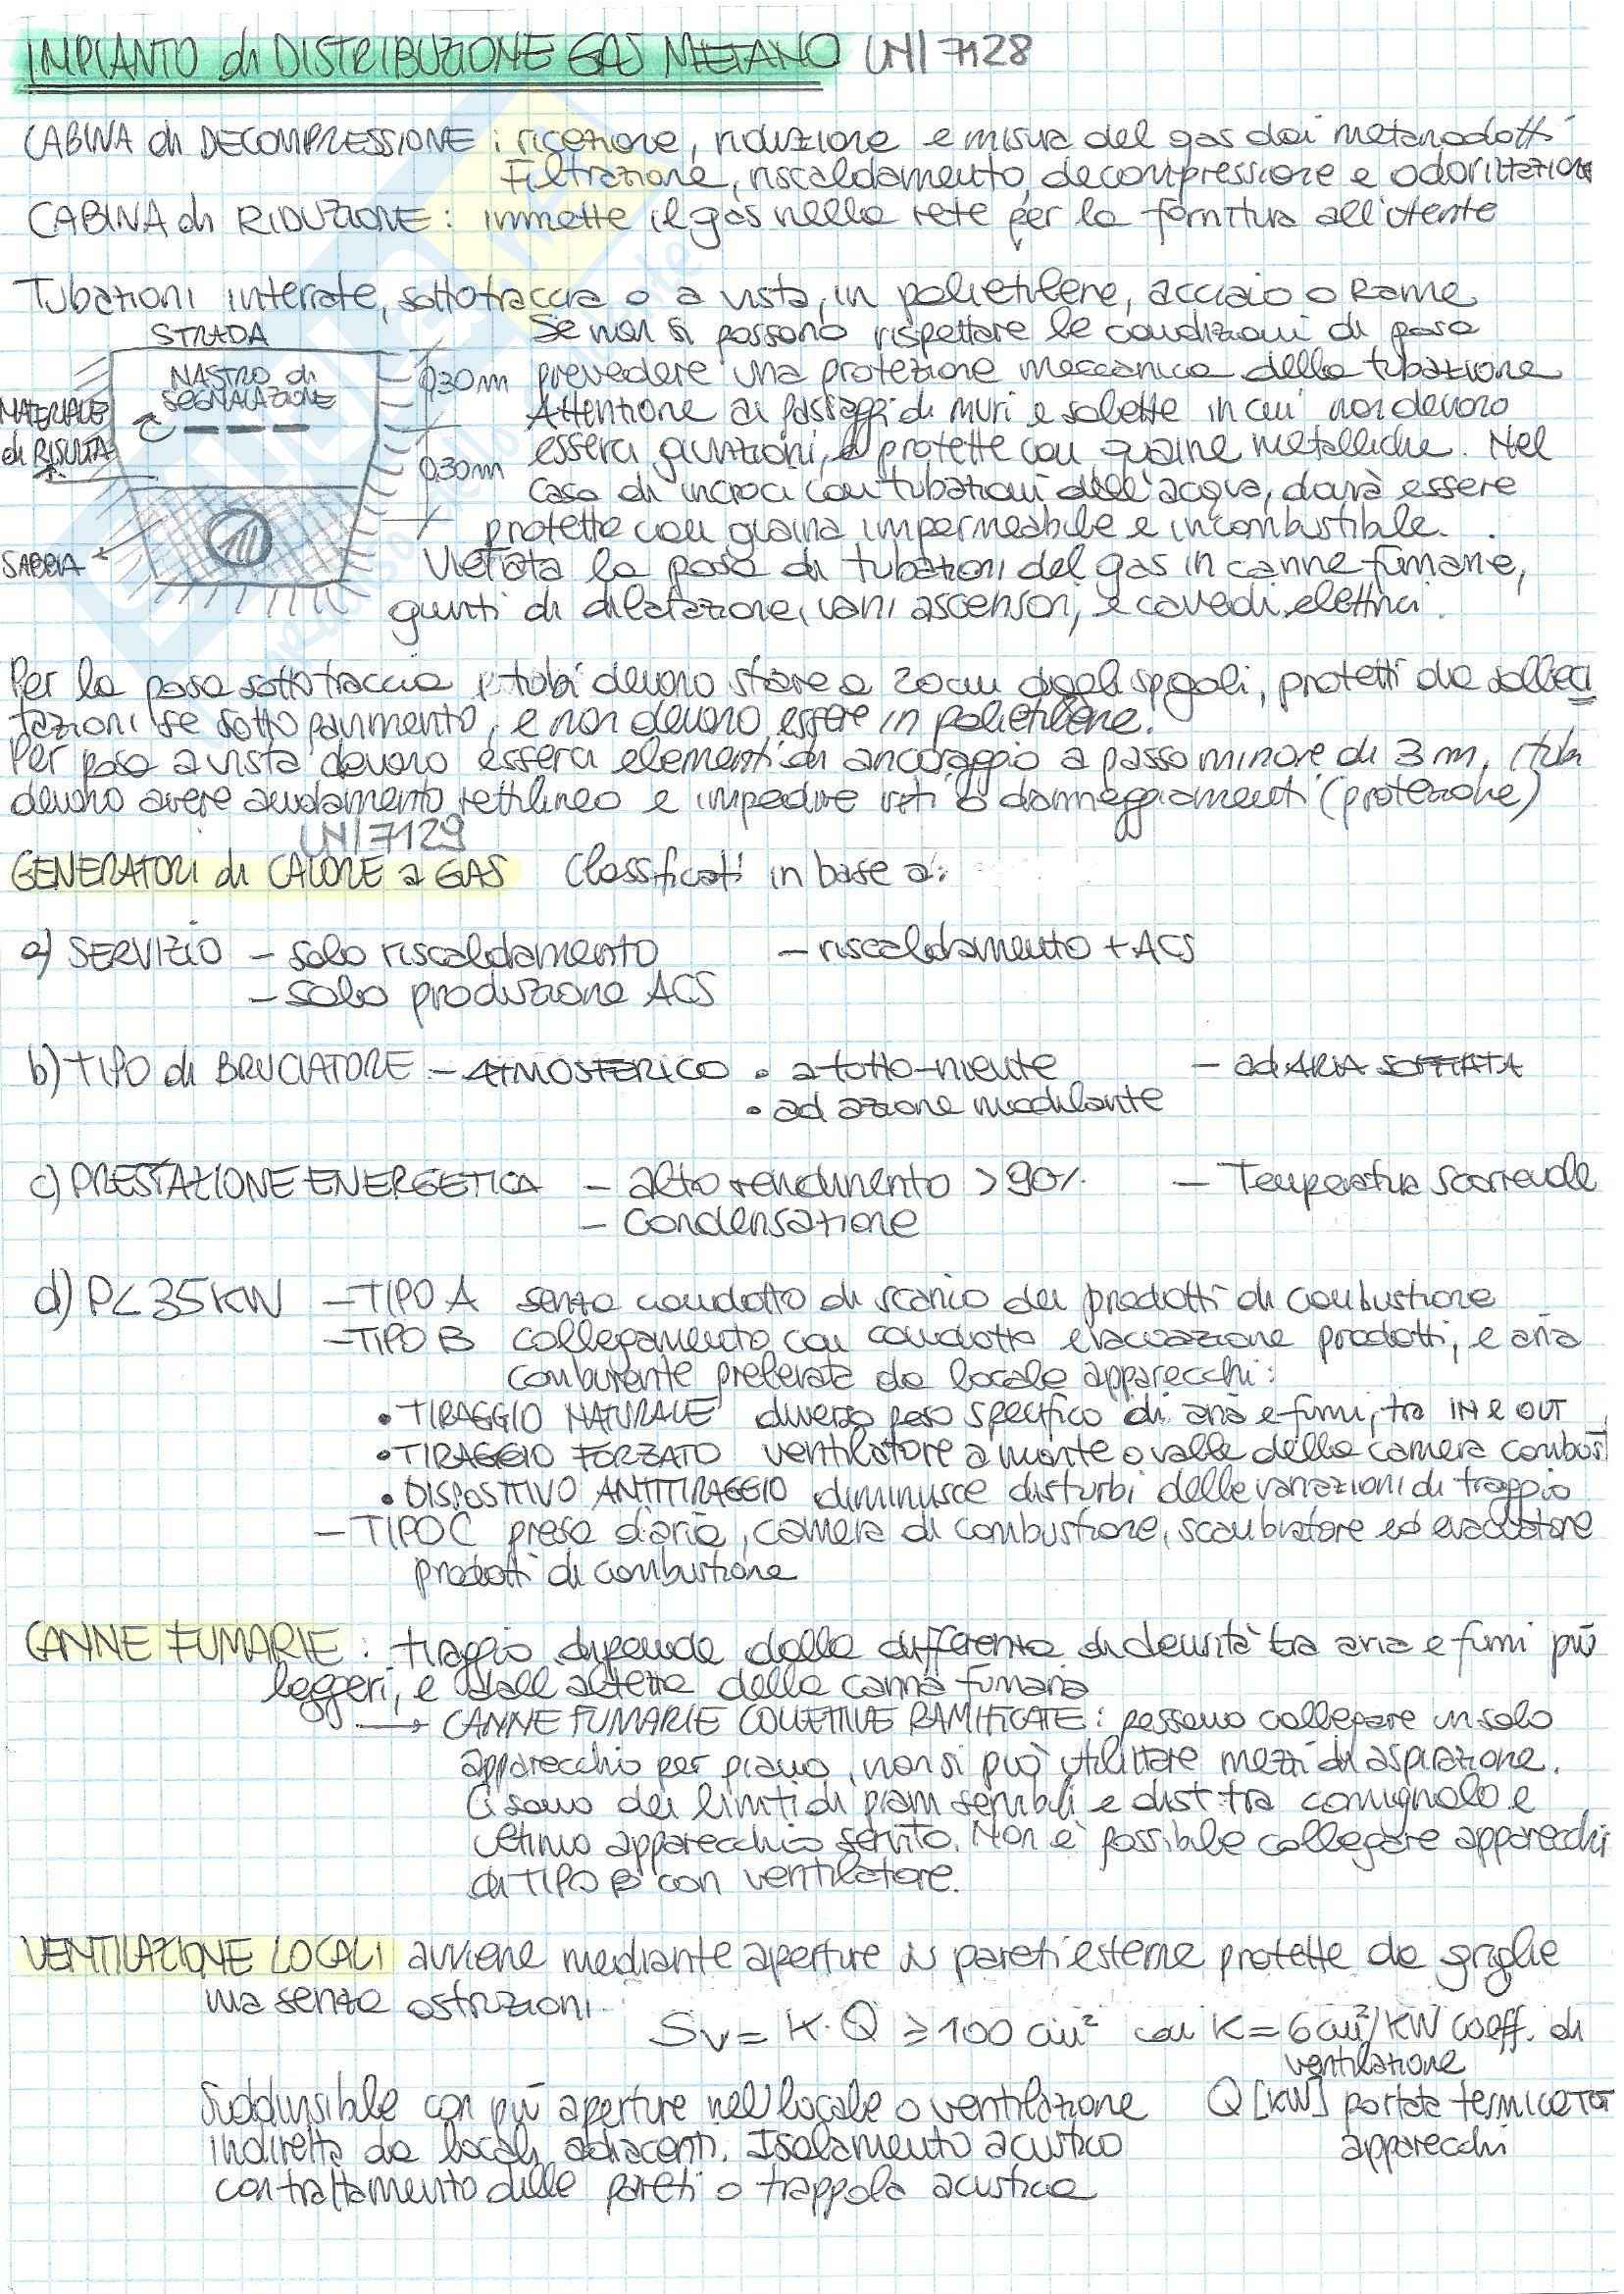 IMPIANTO di DISTRIBUZIONE GAS METANO UNI 7128
CABINA di DECOMPRESSIONE : ricezione, riduzione e misura del gas dai metanodotti
Filtrazione, riscaldamento, decompressione e odorizzazione
CABINA di RIDUZIONE : immette il gas nella rete per la fornitura all'utente
Tubazioni interrate, sottotraccia o a vista, in polietilene, acciaio o Rame
STRADA
NASTRO di
SEGNALAZIONE
MATERIALE
di RISULTA
SABBIA
0,30 m
0,30 m
Se non si possono rispettare le condizioni di posa
prevedere una protezione meccanica della tubazione
Attenzione ai passaggi di muri e solette in cui non devono
esserci giunzioni, e protette con guaine metalliche. Nel
caso di incroci con tubazioni dell'acqua, dovrà essere
protetta con guaina impermeabile e incombustibile.
Vietata la posa di tubazioni del gas in canne fumarie,
giunti di dilatazione, vani ascensori, e cavedi elettrici.
Per la posa sottotraccia i tubi devono stare a 20cm dagli spigoli, protetti da solleci
tazioni se sotto pavimento, e non devono essere in polietilene.
Per posa a vista devono esserci elementi di ancoraggio a passo minore di 3 m, i tubi
devono avere andamento rettilineo e impedire urti o danneggiamenti (protezione)
UNI 7129
GENERATORI di CALORE a GAS Classificati in base a:
a) SERVIZIO - solo riscaldamento - riscaldamento + ACS
- solo produzione ACS
b) TIPO di BRUCIATORE - ATMOSFERICO • a tutto-niente - ad ARIA SOFFIATA
• ad azione modulante
c) PRESTAZIONE ENERGETICA - alto rendimento > 90% - Temperatura scorrevole
- Condensazione
d) P< 35 KW - TIPO A senza condotto di scarico dei prodotti di combustione
- TIPO B collegamento con condotto evacuazione prodotti, e aria
comburente prelevata da locale apparecchi:
• TIRAGGIO NATURALE diverso peso specifico di aria e fumi, tra IN e OUT
• TIRAGGIO FORZATO ventilatore a monte o valle della camera combust
• DISPOSITIVO ANTITIRAGGIO diminuisce disturbi delle variazioni di traggio
- TIPO C presa d'aria, camera di combustione, scambiatore ed evacuatore
prodotti di combustione
CANNE FUMARIE : tiraggio dipende dalla differenza di densità tra aria e fumi più
leggeri, e dall'altezza della canna fumaria
→ CANNE FUMARIE COLLETTIVE RAMIFICATE : possono collegare un solo
apparecchio per piano, non si può utilizzare mezzi di aspirazione.
Ci sono dei limiti di piani servibili e dist. tra comignolo e
ultimo apparecchio servito. Non è possibile collegare apparecchi
di TIPO B con ventilatore.
VENTILAZIONE LOCALI avviene mediante aperture su pareti esterne protette da griglie
ma senza ostruzioni.
Sv = K · Q ≥ 100 cm² con K = 6 cm²/KW coeff. di
ventilazione
Suddivisibile con più aperture nel locale o ventilazione Q [KW] portata termica TOT
indiretta da locali adiacenti. Isolamento acustico apparecchi
con trattamento delle pareti o trappola acustica